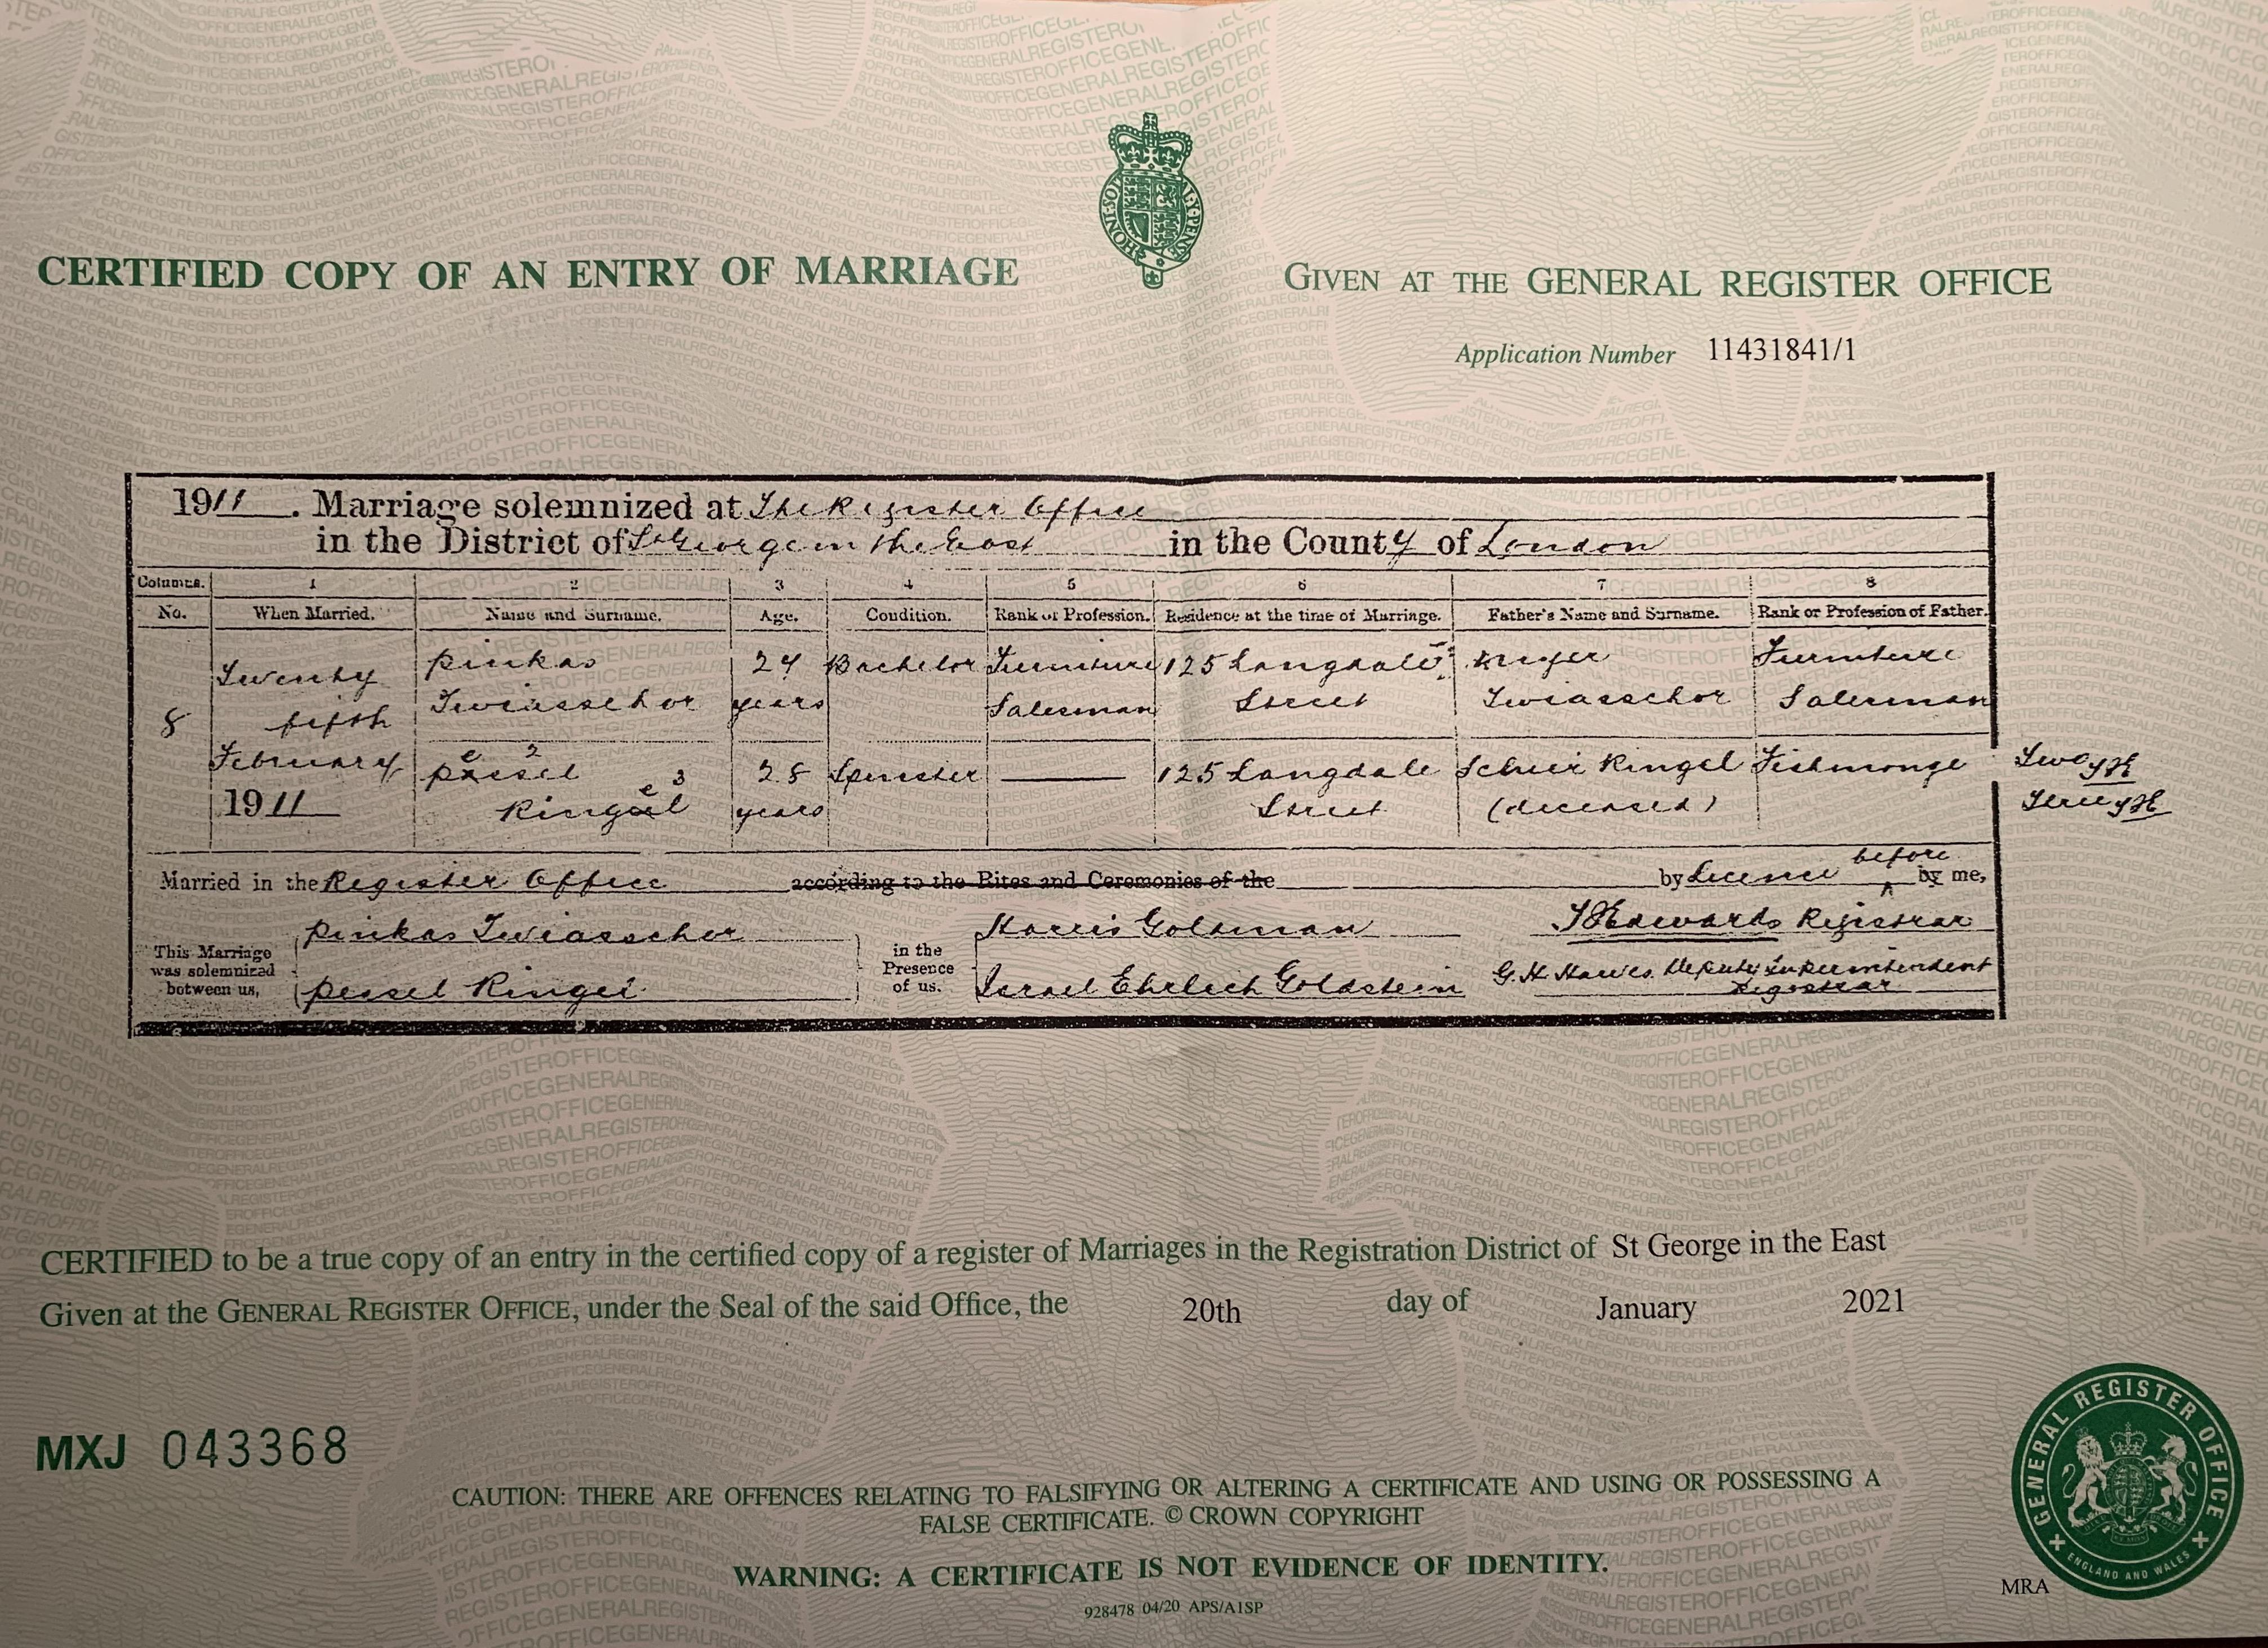 CERTIFIED COPY OF AN ENTRY OF MARRIAGE
GIVEN AT THE GENERAL REGISTER OFFICE
Application Number 11431841/1
1911. Marriage solemnized at The Register Office
in the District of St George in the East in the County of London
Columns. 1 2 3 4 5 6 7 8
No. When Married. Name and Surname. Age. Condition. Rank or Profession. Residence at the time of Marriage. Father's Name and Surname. Rank or Profession of Father.
Twenty Pinkas 24 Bachelor Furniture 125 Langdale Furniture
fifth Twiasschor years Salesman Street Twiasschor Salesman
8
February Pessel 2 28 Spinster 125 Langdale Scheir Ringel Fishmonger Two
1911 Ringel 3 years Street (deceased) Three
Married in the Register Office according to the Rites and Ceremonies of the by Licence before by me,
This Marriage was solemnized between us,
Pinkas Twiasschor
Pessel Ringel
in the Presence of us.
Harris Goldman
Israel Ehrlich Goldstein
Edwards Registrar
G. H. Deputy Superintendent
Registrar
CERTIFIED to be a true copy of an entry in the certified copy of a register of Marriages in the Registration District of St George in the East
Given at the GENERAL REGISTER OFFICE, under the Seal of the said Office, the 20th day of January 2021
MXJ 043368
CAUTION: THERE ARE OFFENCES RELATING TO FALSIFYING OR ALTERING A CERTIFICATE AND USING OR POSSESSING A
FALSE CERTIFICATE. © CROWN COPYRIGHT
WARNING: A CERTIFICATE IS NOT EVIDENCE OF IDENTITY.
928478 04/20 APS/A1SP
MRA
GENERAL REGISTER OFFICE
ENGLAND AND WALES